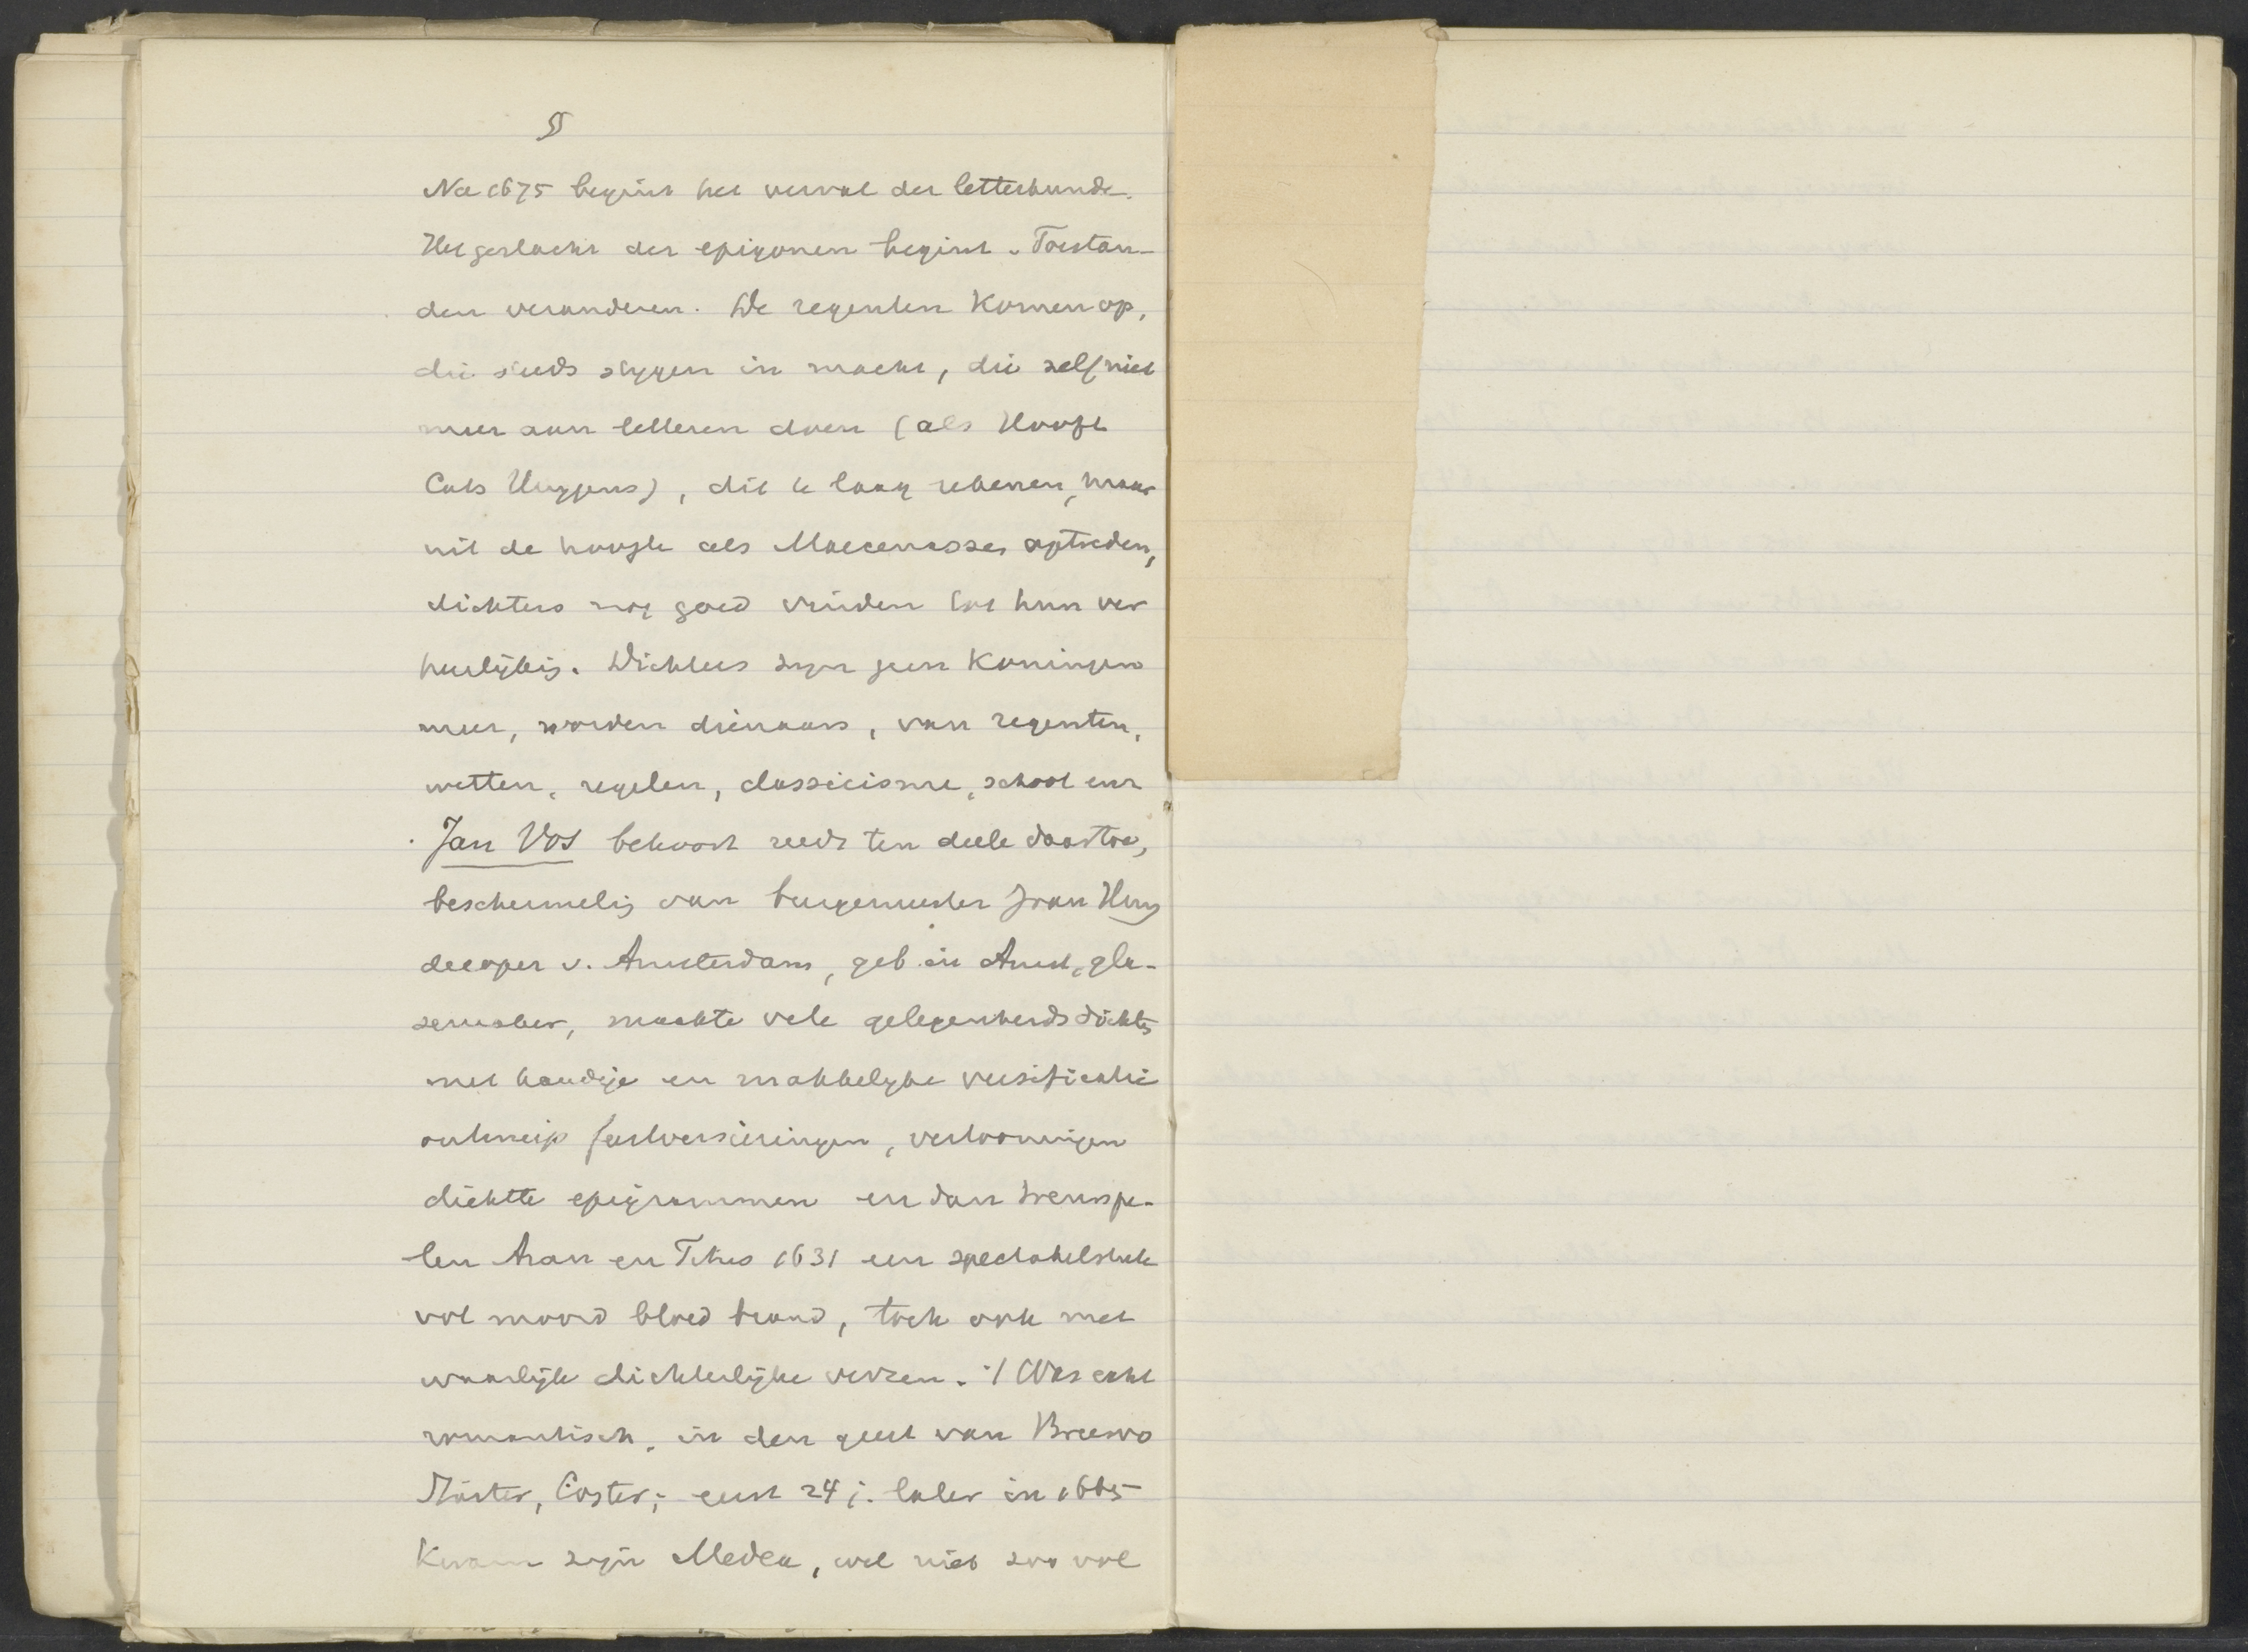 55
Na 1675 begint het verval der letterkunde.
Het geslacht der epigonen begint. Toestan-
den veranderen. De regenten komen op,
die steeds stygen in macht, die zelf niet
meer aan letteren doen (als Hooft
Cats Huygens), dit te laag rekenen, maar
uit de hoogte als Maecenassen optreden,
dichters nog goed vinden tot hun ver
heerlijking. Dichters zyn geen Koningen
meer, worden dienaars, van regenten,
wetten, regelen, classicisme, school enz
Jan Vos behoort reeds ten deele daartoe,
beschermeling van burgemeester Joan Huy
decoper v. Amsterdam, geb. in Amst, gla-
zemaker, maakte vele gelegenheidsdichten
met handige en makkelyke versificatie
ontwierp feestversieringen, vertooningen
dichtte epigrammen en dan treurspe-
len Aran en Titus 1631 een spectakelstuk
vol moord bloed brand, toch ook met
waarlijk dichterlijke verzen. 't Was echt
romantisch, in den geest van Breero
Coster; eerst 24 j. later in 1665
Kwam zyn Medea, wel niet zoo vol